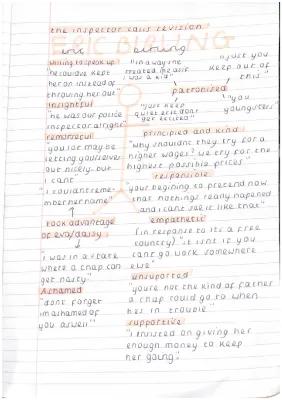 the inspector calls revision
ERIC BIRLING
eric birling
willing to speak up
"he could've kept
her on instead of
throwing her out"
insightful
"he was our police
inspector alright"
remorseful
"you lot may be
letting yourselves
out nicely, but
i can't"
"i couldn't reme-
mber her name"
took advantage
of eva/daisy
i was in a state
where a chap can
get nasty"
Ashamed
"don't forget
im ashamed of
you aswell"
"in a way she
treated me as if
i was a kid"
"just you
keep out of
this"
patronised
"just keep
quiet eric dont
get excited"
"you
youngsters"
principled and kind
"Why shouldnt they try for
higher wages? we try for the
highest possible prices"
responsible
"your begining to pretend now
that nothings really happened
and i cant see it like that"
empathetic
(in response to its a free
country) "it isnt if you
cant go work somewhere
else"
unsupported
"you're not the kind of father
a chap could go to when
hes in trouble"
supportive
"i insisted on giving her
enough money to keep
her going"